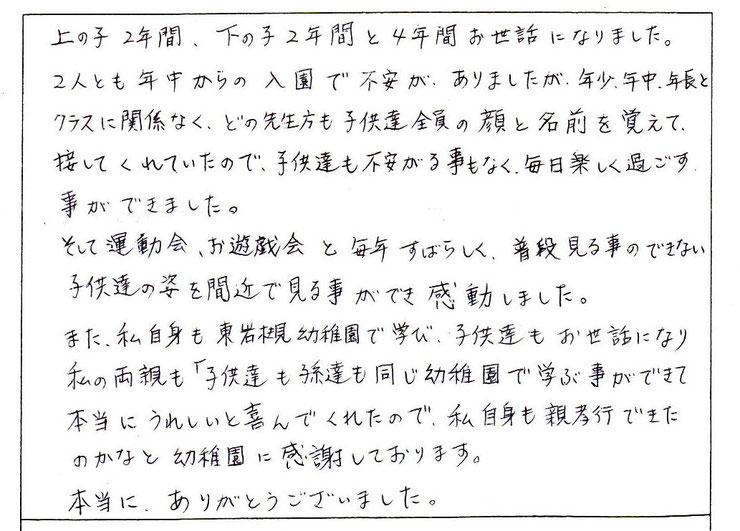 上の子2年間、下の子2年間と4年間お世話になりました。
2人とも年中からの入園で不安が、ありましたが、年少、年中、年長と
クラスに関係なく、どの先生方も子供達全員の顔と名前を覚えて、
接してくれていたので、子供達も不安がる事もなく、毎日楽しく過ごす
事ができました。
そして運動会、お遊戯会と毎年すばらしく、普段見る事のできない
子供達の姿を間近で見る事ができ感動しました。
また、私自身も東岩槻幼稚園で学び、子供達もお世話になり
私の両親も「子供達も孫達も同じ幼稚園で学ぶ事ができて
本当にうれしいと喜んでくれたので、私自身も親孝行できた
のかなと幼稚園に感謝しております。
本当に、ありがとうございました。